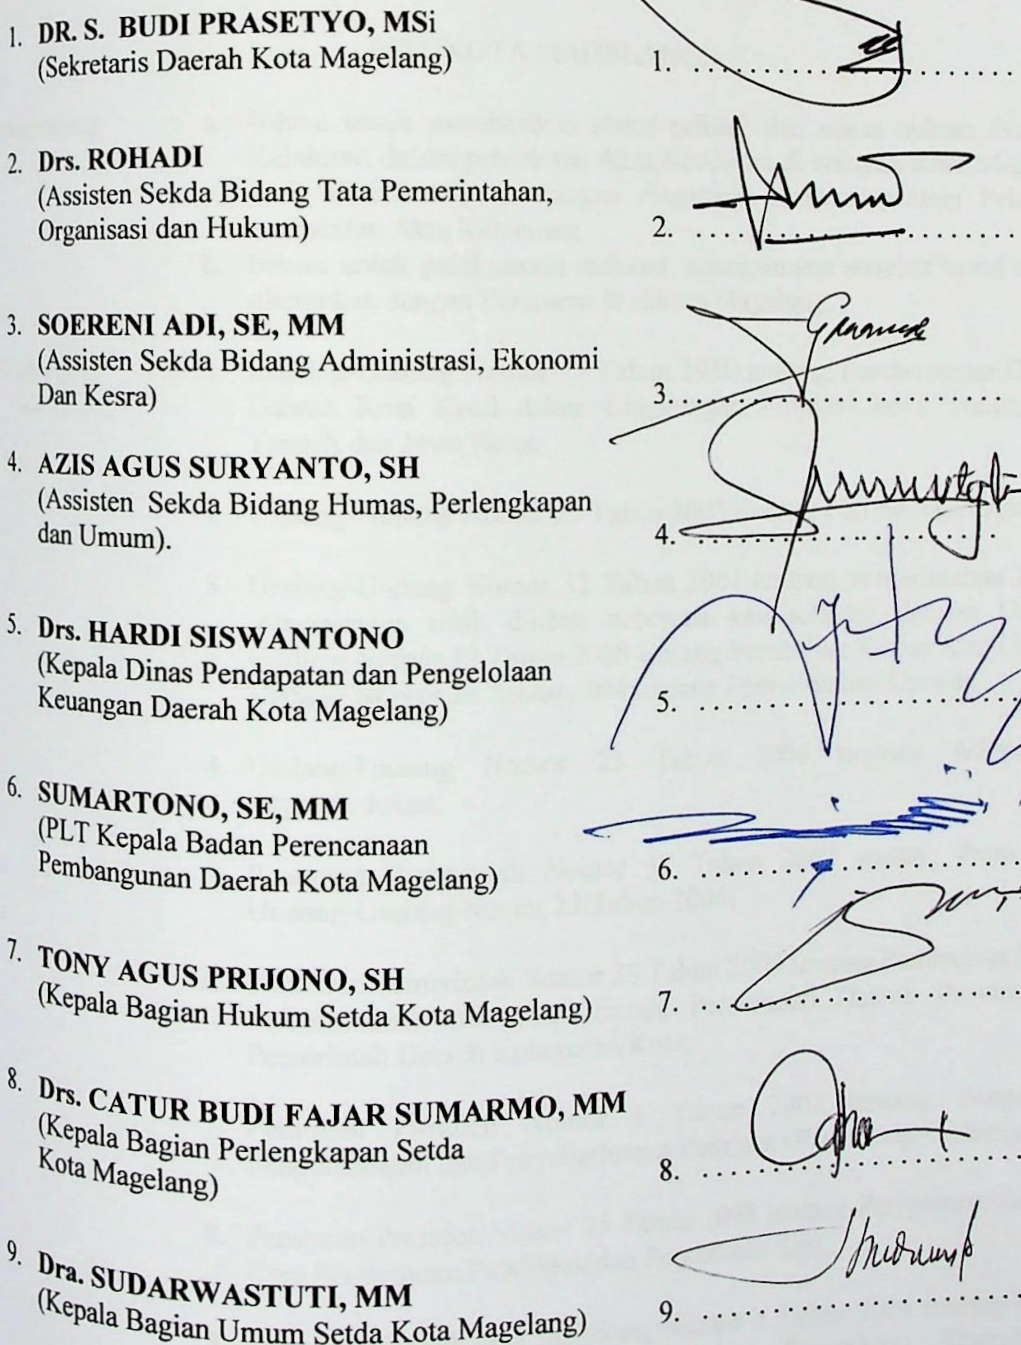 1. DR. S. BUDI PRASETYO, MSi
(Sekretaris Daerah Kota Magelang)
1. ....................
2. Drs. ROHADI
(Assisten Sekda Bidang Tata Pemerintahan,
Organisasi dan Hukum)
2. ....................
3. SOERENI ADI, SE, MM
(Assisten Sekda Bidang Administrasi, Ekonomi
Dan Kesra)
3. ....................
4. AZIS AGUS SURYANTO, SH
(Assisten Sekda Bidang Humas, Perlengkapan
dan Umum).
4. ....................
5. Drs. HARDI SISWANTONO
(Kepala Dinas Pendapatan dan Pengelolaan
Keuangan Daerah Kota Magelang)
5. ....................
6. SUMARTONO, SE, MM
(PLT Kepala Badan Perencanaan
Pembangunan Daerah Kota Magelang)
6. ....................
7. TONY AGUS PRIJONO, SH
(Kepala Bagian Hukum Setda Kota Magelang)
7. ....................
8. Drs. CATUR BUDI FAJAR SUMARMO, MM
(Kepala Bagian Perlengkapan Setda
Kota Magelang)
8. ....................
9. Dra. SUDARWASTUTI, MM
(Kepala Bagian Umum Setda Kota Magelang)
9. ....................